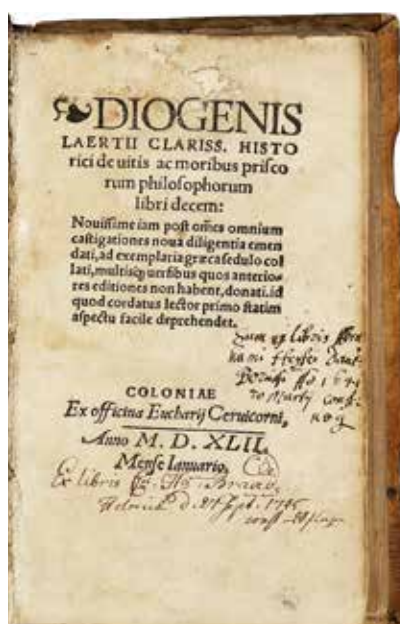 DIOGENIS
LAERTII CLARISS. HISTO
rici de uitis ac moribus prisco
rum philosophorum
libri decem:
Nouissime iam post omes omnium
castigationes noua diligentia emen
dati, ad exemplaria græca sedulo col
lati, multisq; uersibus quos anterio-
res editiones non habent, donati. id
quod cordatus lector primo statim
aspectu facile deprehendet.
ex libris
COLONIAE
Ex officina Eucharij Ceruicorni,
Anno M. D. XLII.
Mense Ianuario,
Ex libris
d. 27 Sept. 1746